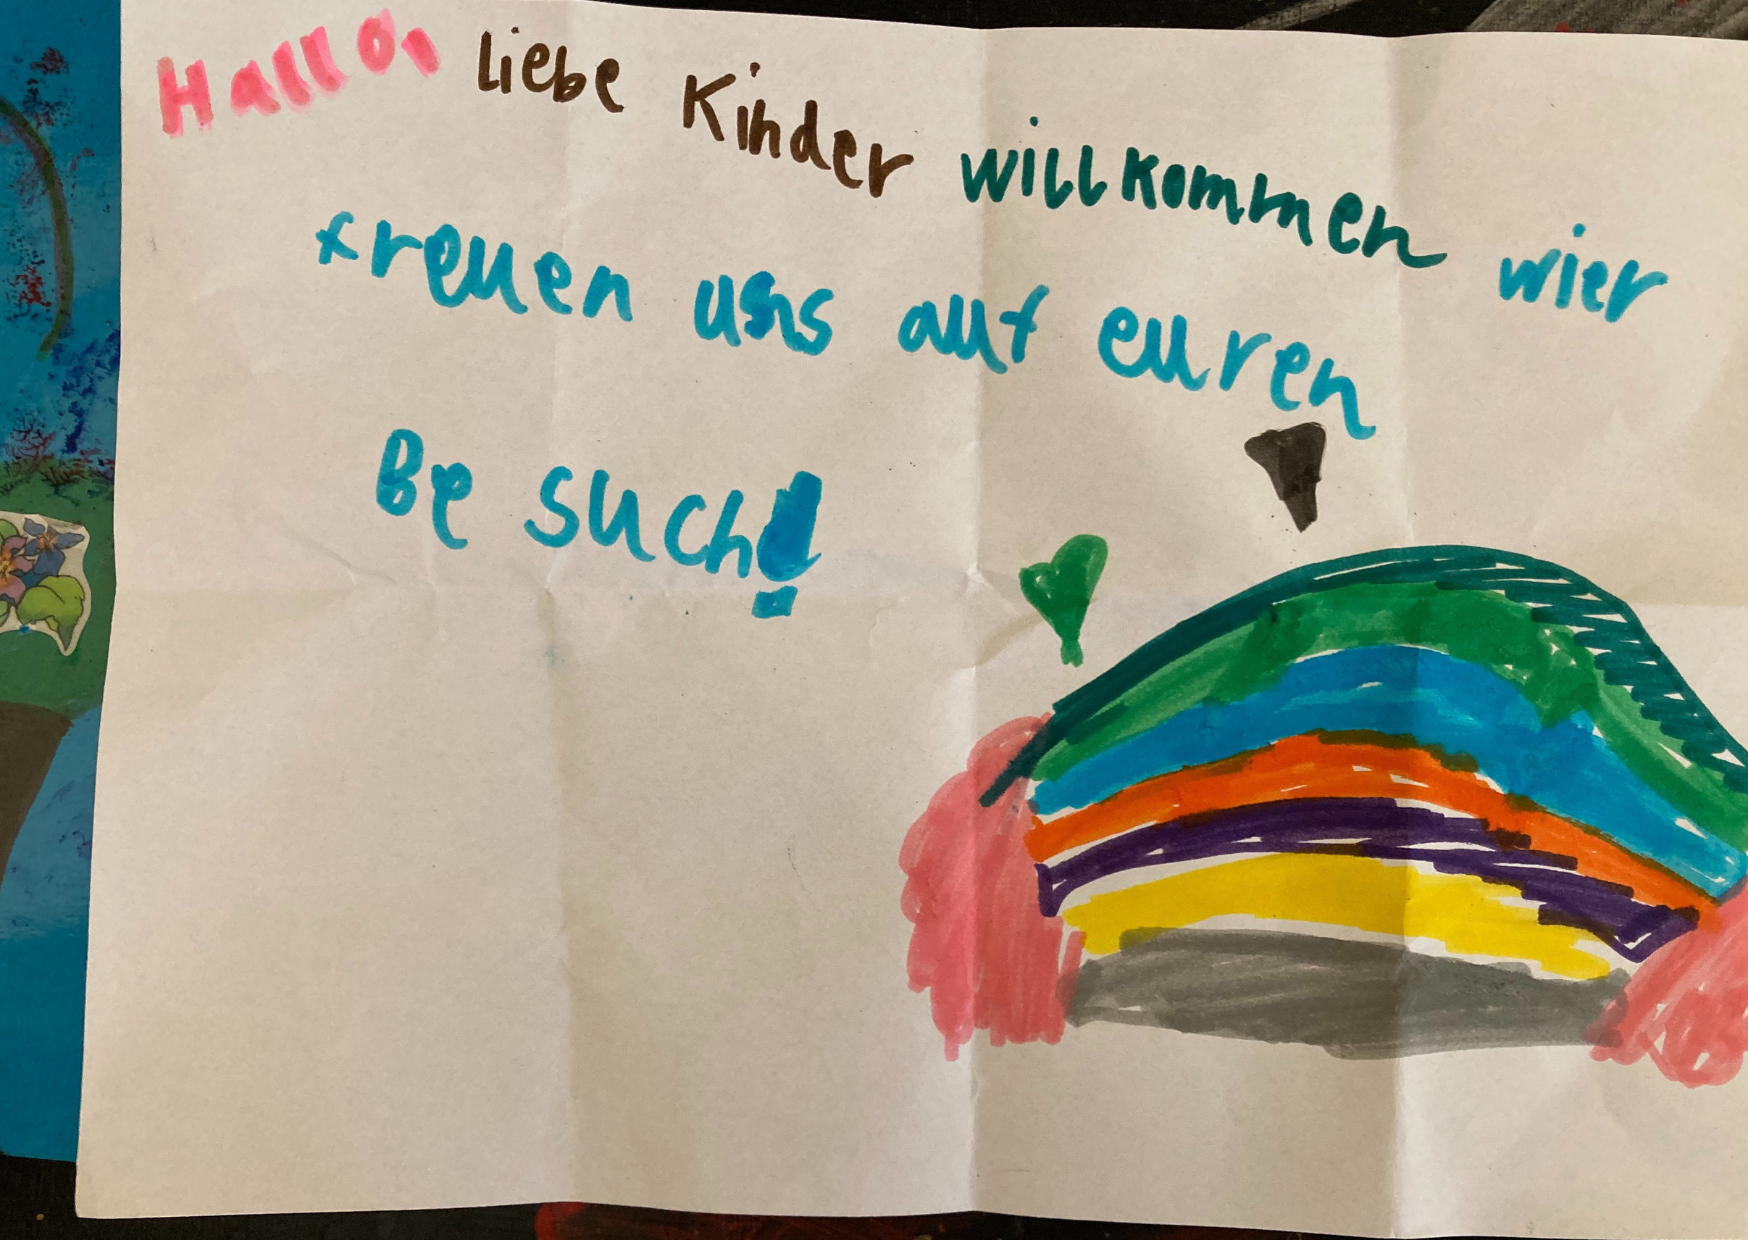 Hallo, liebe Kinder willkommen wier
freuen uns auf euren
Be such!